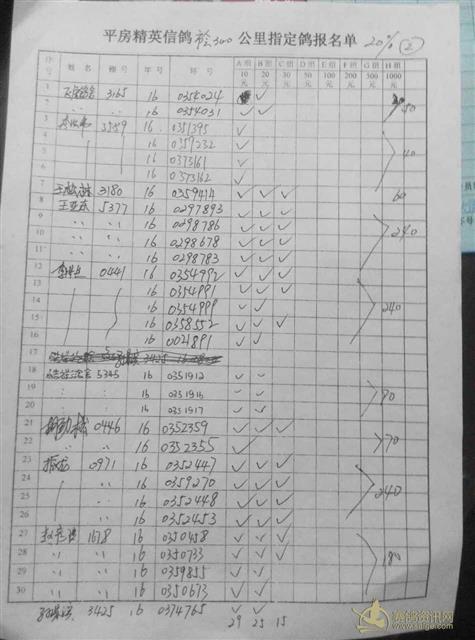 平房精英信鸽 秋300 公里指定鸽报名单 20% ②
序号 姓名 棚号 年号 环号 A组10元 B组20元 C组30元 D组50元 E组100元 F组200元 G组500元 H组1000元
1 3165 16 0354024 ✓
2 〃 〃 16 0354031 ✓ ✓ 50
3 3559 16 0351395 ✓
4 16 0359232 ✓
5 16 0373161 ✓ 40
6 16 0373162 ✓
7 3180 16 0359414 ✓ ✓ ✓ 60
8 王亚东 5377 16 0297893 ✓ ✓ ✓
9 〃 〃 16 0298786 ✓ ✓ ✓ 240
10 〃 〃 16 0298678 ✓ ✓ ✓
11 〃 〃 16 0298783 ✓ ✓ ✓
12 0441 16 0354992 ✓ ✓ ✓
13 16 0354991 ✓ ✓ ✓
14 16 0354999 ✓ ✓ 240
15 16 0358552 ✓ ✓ ✓
16 16 0021891 ✓ ✓
17
18 5345 16 0351912 ✓ ✓
19 16 0351916 ✓ ✓ 90
20 16 0351917 ✓ ✓
21 0446 16 0352359 ✓ ✓ ✓
22 〃 〃 16 0352355 ✓ 70
23 0971 16 0352447 ✓ ✓ ✓
24 16 0359270 ✓ ✓ ✓ 240
25 16 0352448 ✓ ✓ ✓
26 16 0352453 ✓ ✓ ✓
27 1678 16 0350458 ✓ ✓ ✓
28 〃 〃 16 0350733 ✓ ✓ ✓ 180
29 〃 〃 16 0359855 ✓ ✓
30 〃 〃 16 0350673 ✓ ✓
3425 16 0374765 ✓ ✓
29 25 15
赛鸽资讯网
www.saige.com